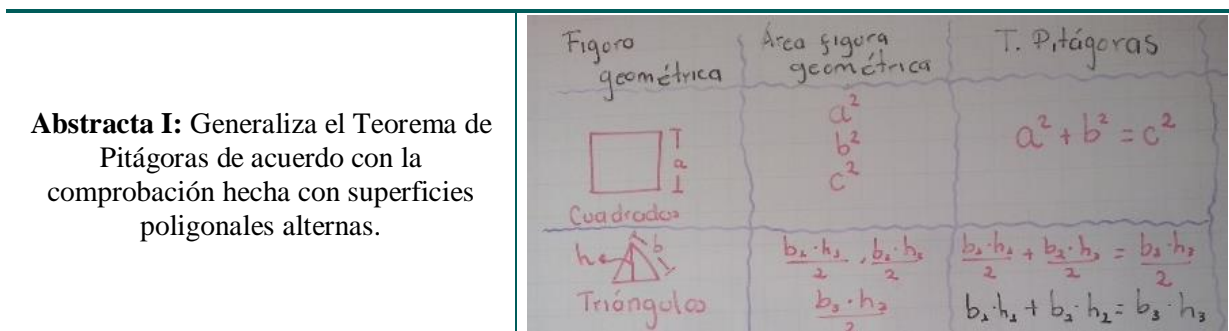 Abstracta I: Generaliza el Teorema de
Pitágoras de acuerdo con la
comprobación hecha con superficies
poligonales alternas.
Figora
geométrica
Área figura
geométrica
T. Pitágoras
a
Cuadrados
a²
b²
c²
a² + b² = c²
h
b
Triángulos
b₁·h₁/2 , b₂·h₂/2
b₃·h₃/2
b₁·h₁/2 + b₂·h₂/2 = b₃·h₃/2
b₁·h₁ + b₂·h₂ = b₃·h₃